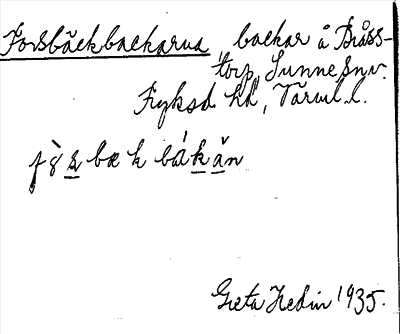 Forsbäckbackarna, backar å Bråss-
torp, Sunne sn.
Fryksd. hd, Värml. l.
bæk båkän
Greta Hedin 1935.